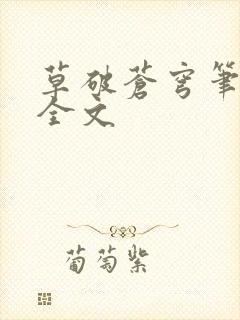 草破蒼穹筆
全文
葡萄紫